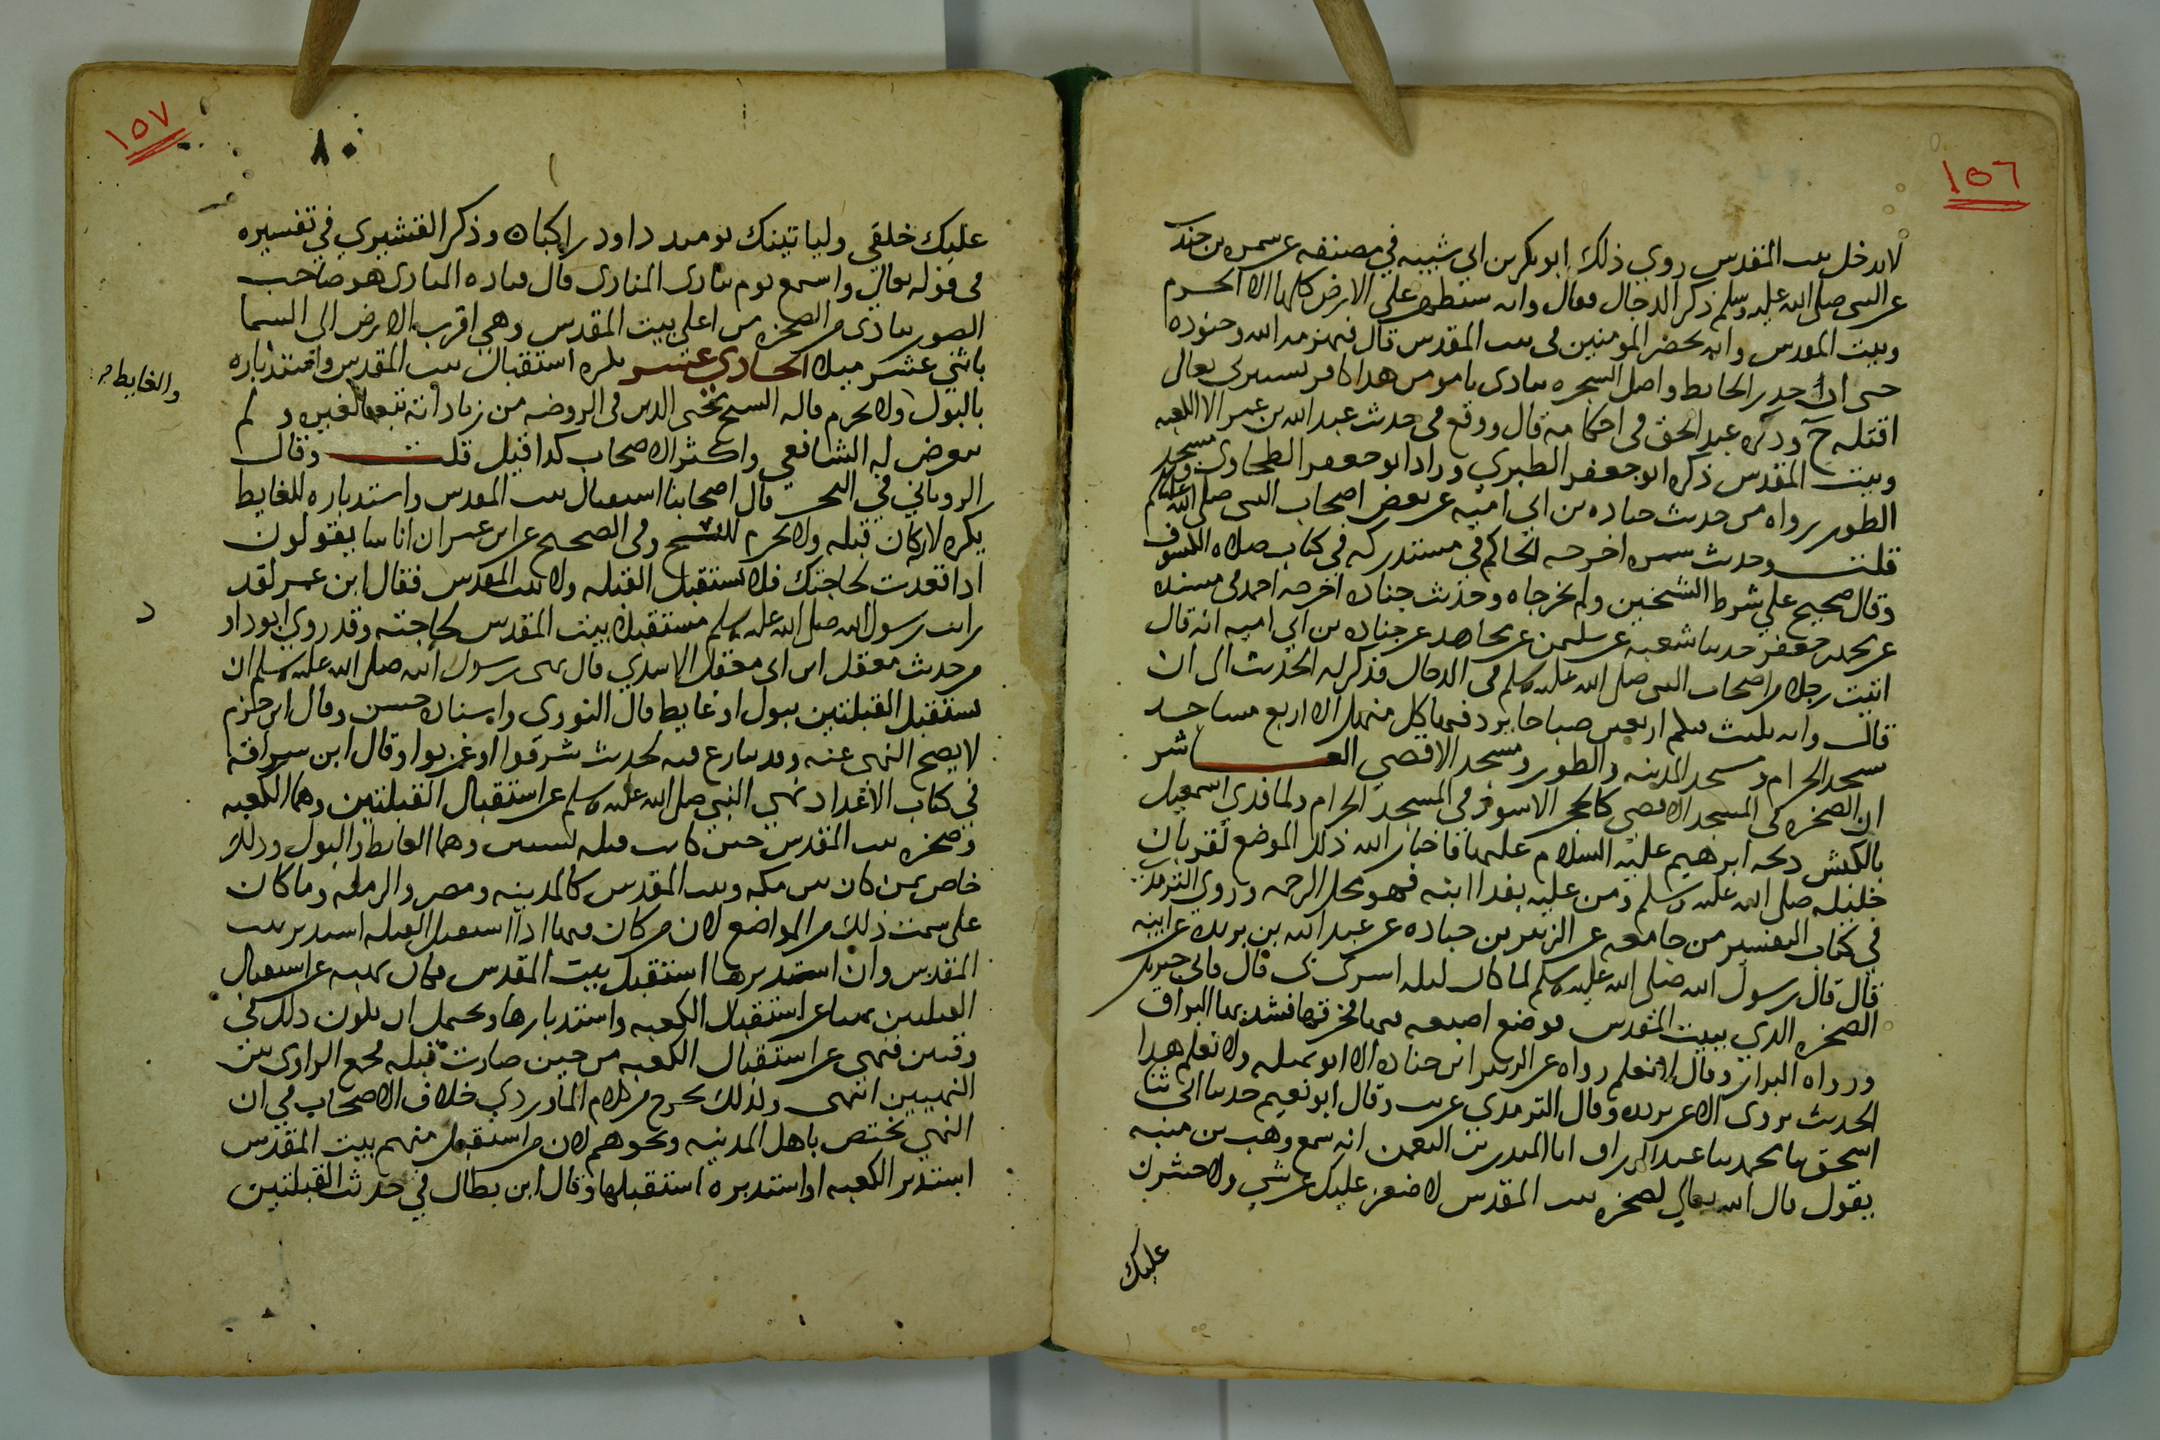 ١٥٦
لا يدخل بيت المقدس روي ذلك ابو بكر بن ابي شيبه في مصنفه عن سمره بن جندب
عن النبي صلى الله عليه وسلم ذكر الدجال فقال وانه سيظهر علي الارض كلها الا الحرم
وبيت المقدس وانه يحصر المومنين في بيت المقدس قال فيهزمه الله وجنوده
حتى ان جدر الحايط واصل الشجره ينادى يا مومن هذا كافر يستتر بي تعال
اقتله وذكره عبد الحق في احكامه قال ووقع في حديث عبد الله بن عمر الا الكعبه
وبيت المقدس ذكره ابو جعفر الطبري وزاد ابو جعفر الطحاوي ومسجد
الطور رواه من حديث جناده بن ابي اميه عن بعض اصحاب النبى صلى الله عليه وسلم
قلت وحديث سمره اخرجه الحاكم في مستدركه في كتاب صلاه الكسوف
وقال صحيح علي شرط الشيخين ولم يخرجاه وحديث جناده اخرجه احمد في مسنده
عن محمد بن جعفر حدثنا شعبه عن سليمن عن مجاهد عن جناده بن ابي اميه انه قال
اتيت رجلا من اصحاب النبى صلى الله عليه وسلم في الدجال فذكر له الحديث الى ان
قال وانه يلبث فيكم اربعين صباحا يرد فيها كل منهل الا اربع مساجد
مسجد الحرام ومسجد المدينه والطور ومسجد الاقصي العاشر
ان الصخره في المسجد الاقصى كالحجر الاسود في المسجد الحرام ولما فدي اسمعيل
بالكبش ذبحه ابرهيم عليه السلام عليها فاختار الله ذلك الموضع لقربان
خليله صلى الله عليه وسلم ومن عليه بفدا ابنه فهو محل الرحمه وروي الترمذي
في كتاب التفسير من جامعه عن الزبير بن جناده عن عبد الله بن بريده عن ابيه
قال قال رسول الله صلى الله عليه وسلم لما كان ليله اسرى بى قال فاتى جبريل
الصخره الذي ببيت المقدس فوضع اصبعه فيها فخرقها فشد بها البراق
ورواه البزار وقال لا نعلم رواه عن الزبير ابن جناده الا ابو تميله ولا نعلم هذا
الحديث يروى الا عن بريده وقال الترمذي غريب وقال ابو نعيم حدثنا ابى ثنا
اسحق ثنا محمد ثنا عبد الرزاق انا المنذر بن النعمن انه سمع وهب بن منبه
يقول قال الله تعالى لصخره بيت المقدس لاضعن عليك عرشي ولاحشرن
عليك
١٥٧
٨٠
عليك خلقي ولياتينك يوميد داود راكبا وذكر القشيري في تفسيره
في قوله تعالي واسمع يوم ينادى المنادى قال قتاده المنادى هو صاحب
الصور ينادى من الصخره من اعلى بيت المقدس وهي اقرب الارض الى السما
باثني عشر ميلا الحادي عشر يكره استقبال بيت المقدس واستدباره
بالبول ولا يحرم قاله الشيخ محيى الدين في الروضه من زياداته تبعا لغيره ولم
والغايط
يتعرض له الشافعي واكثر الاصحاب كذا قيل قلت وقال
الروياني في البحر قال اصحابنا استقبال بيت المقدس واستدباره للغايط
يكره لانه كان قبله ولا يحرم للنسخ وفى الصحيح عن ابن عمر ان اناسا يقولون
اذا قعدت لحاجتك فلا تستقبل القبله ولا بيت المقدس فقال ابن عمر لقد
رايت رسول الله صلى الله عليه وسلم مستقبلا بيت المقدس لحاجته وقد روي ابو داود
من حديث معقل ابن ابى معقل الاسدي قال نهى رسول الله صلى الله عليه وسلم ان
نستقبل القبلتين ببول او غايط قال النووي واسناده حسن وقال ابن حزم
لا يصح النهي عنه وقد ينازع فيه لحديث شرقوا او غربوا وقال ابن سراقه
في كتاب الاعداد نهي النبي صلى الله عليه وسلم عن استقبال القبلتين وهما الكعبه
وصخره بيت المقدس حين كانت قبله لشيئين وهما الغايط والبول وذلك
خاص بمن كان بين مكه وبيت المقدس كالمدينه ومصر والرمله وما كان
على سمت ذلك من المواضع لان من كان فيها اذا استقبل القبله استدبر بيت
المقدس وان استدبرها استقبل بيت المقدس فكان نهيه عن استقبال
القبلتين نهيا عن استقبال الكعبه واستدبارها ويحتمل ان يكون ذلك في
وقتين فنهى عن استقبال الكعبه من حين صارت قبله فجمع الراوي بين
النهيين انتهى ولذلك يخرج من كلام الماوردي خلاف الاصحاب في ان
النهي يختص باهل المدينه ونحوهم لان من استقبل منهم بيت المقدس
استدبر الكعبه او استدبره استقبلها وقال ابن بطال في حديث القبلتين